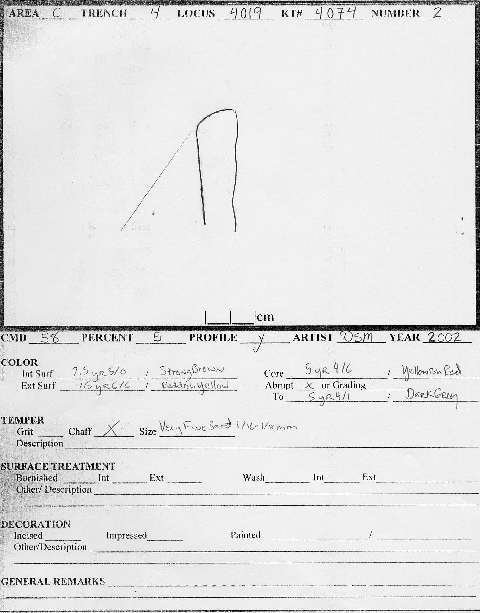 AREA C TRENCH 4 LOCUS 4019 KT# 4074 NUMBER 2
cm
CMD 58 PERCENT 5 PROFILE y ARTIST DSM YEAR 2002
COLOR
Int Surf 7.5 yr 5/6 / Strong Brown Core 5 yr 4/6 / Yellowish Red
Ext Surf 7.5 yr 6/6 / Reddish Yellow Abrupt X or Grading
To 5 yr 4/1 / Dark Gray
TEMPER
Grit Chaff X Size Very Fine Sand 1/16-1/8 mm
Description
SURFACE TREATMENT
Burnished Int Ext Wash Int Ext
Other/ Description
DECORATION
Incised Impressed Painted /
Other/Description
GENERAL REMARKS